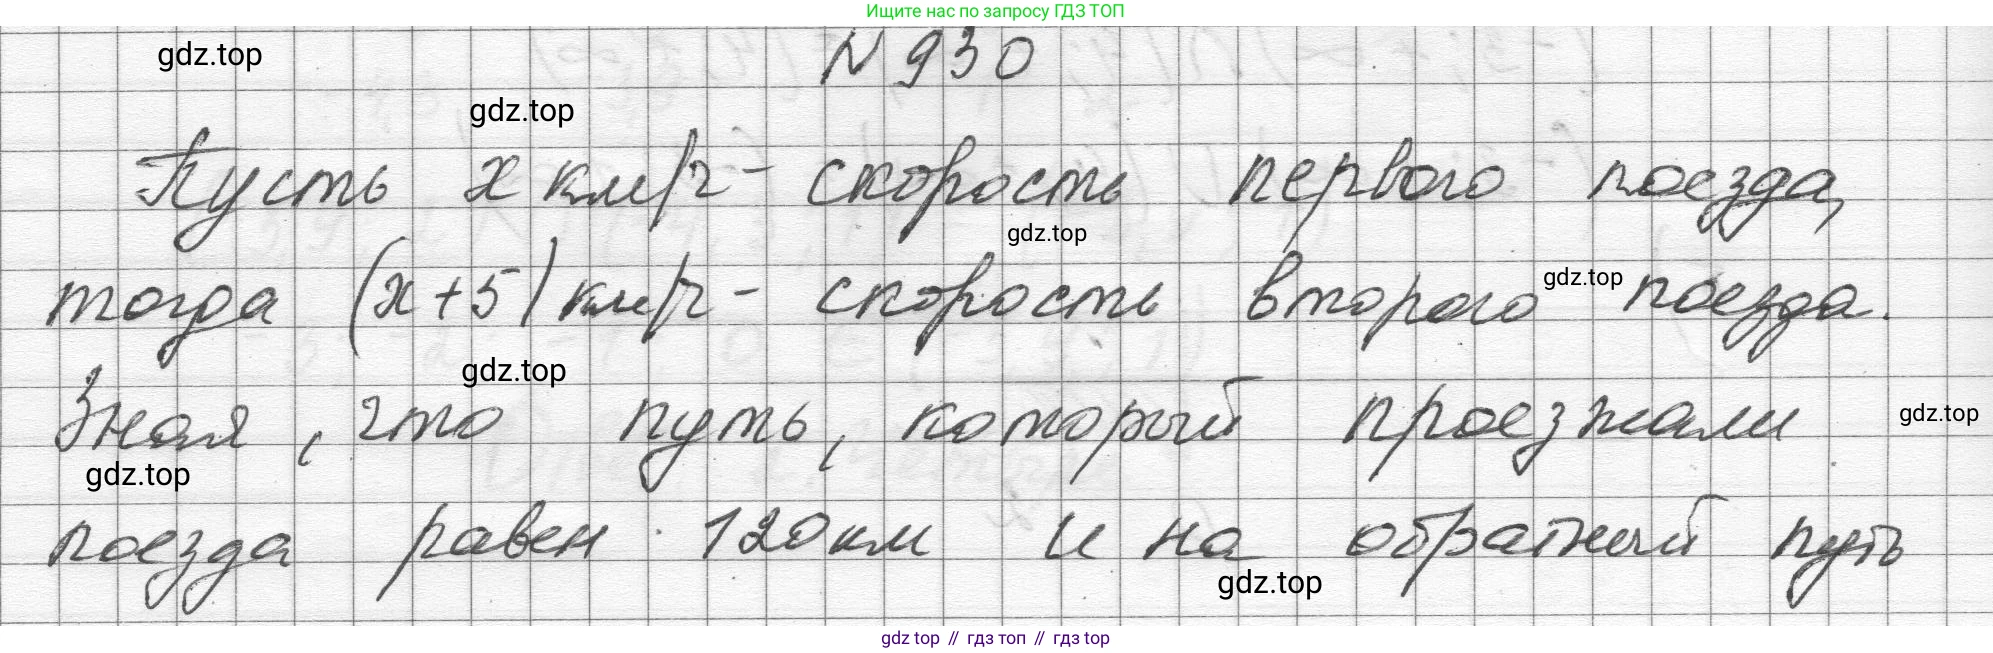 Ищите нас по запросу ГДЗ ТОП
gdz.top
N 930
gdz.top
Пусть x км/ч - скорость первого поезда,
gdz.top
тогда (x+5) км/ч - скорость второго поезда.
gdz.top
gdz.top
Зная, что путь, который проезжали
gdz.top
gdz.top
поезда равен 120 км и на обратный путь
gdz.top
gdz top // гдз топ // гдз top